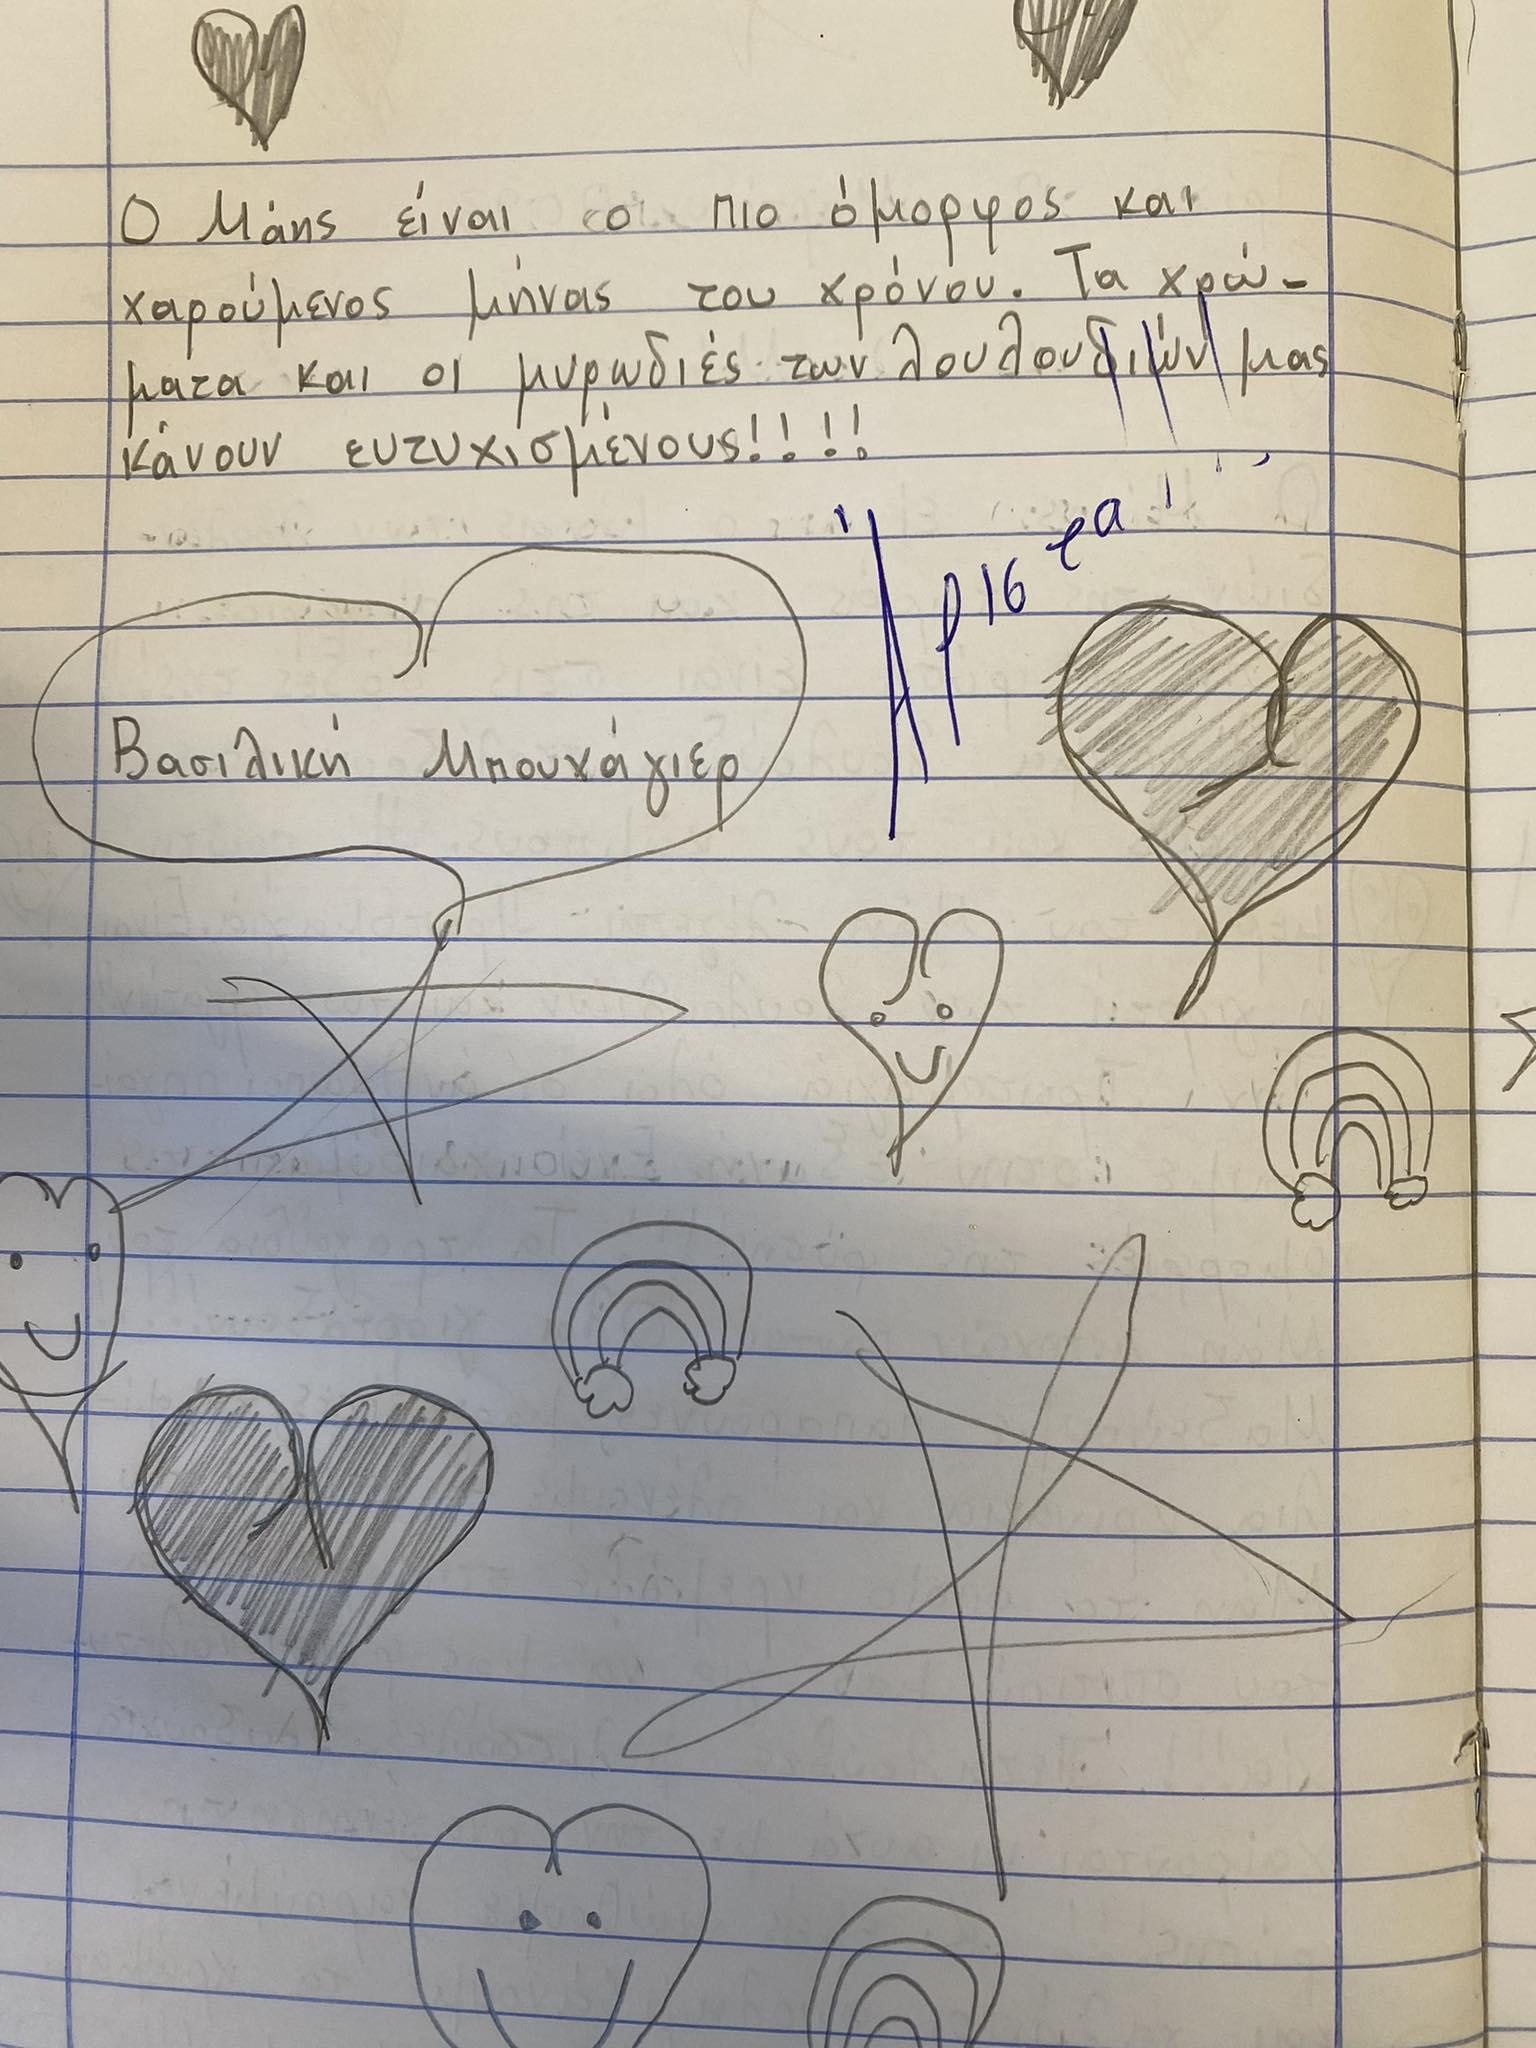 Ο Μάης είναι ο πιο όμορφος και
χαρούμενος μήνας του χρόνου. Τα χρώ-
ματα και οι μυρωδιές των λουλουδιών μας
κάνουν ευτυχισμένους!!!!
Άριστα!
Βασιλική Μπουχάγιερ